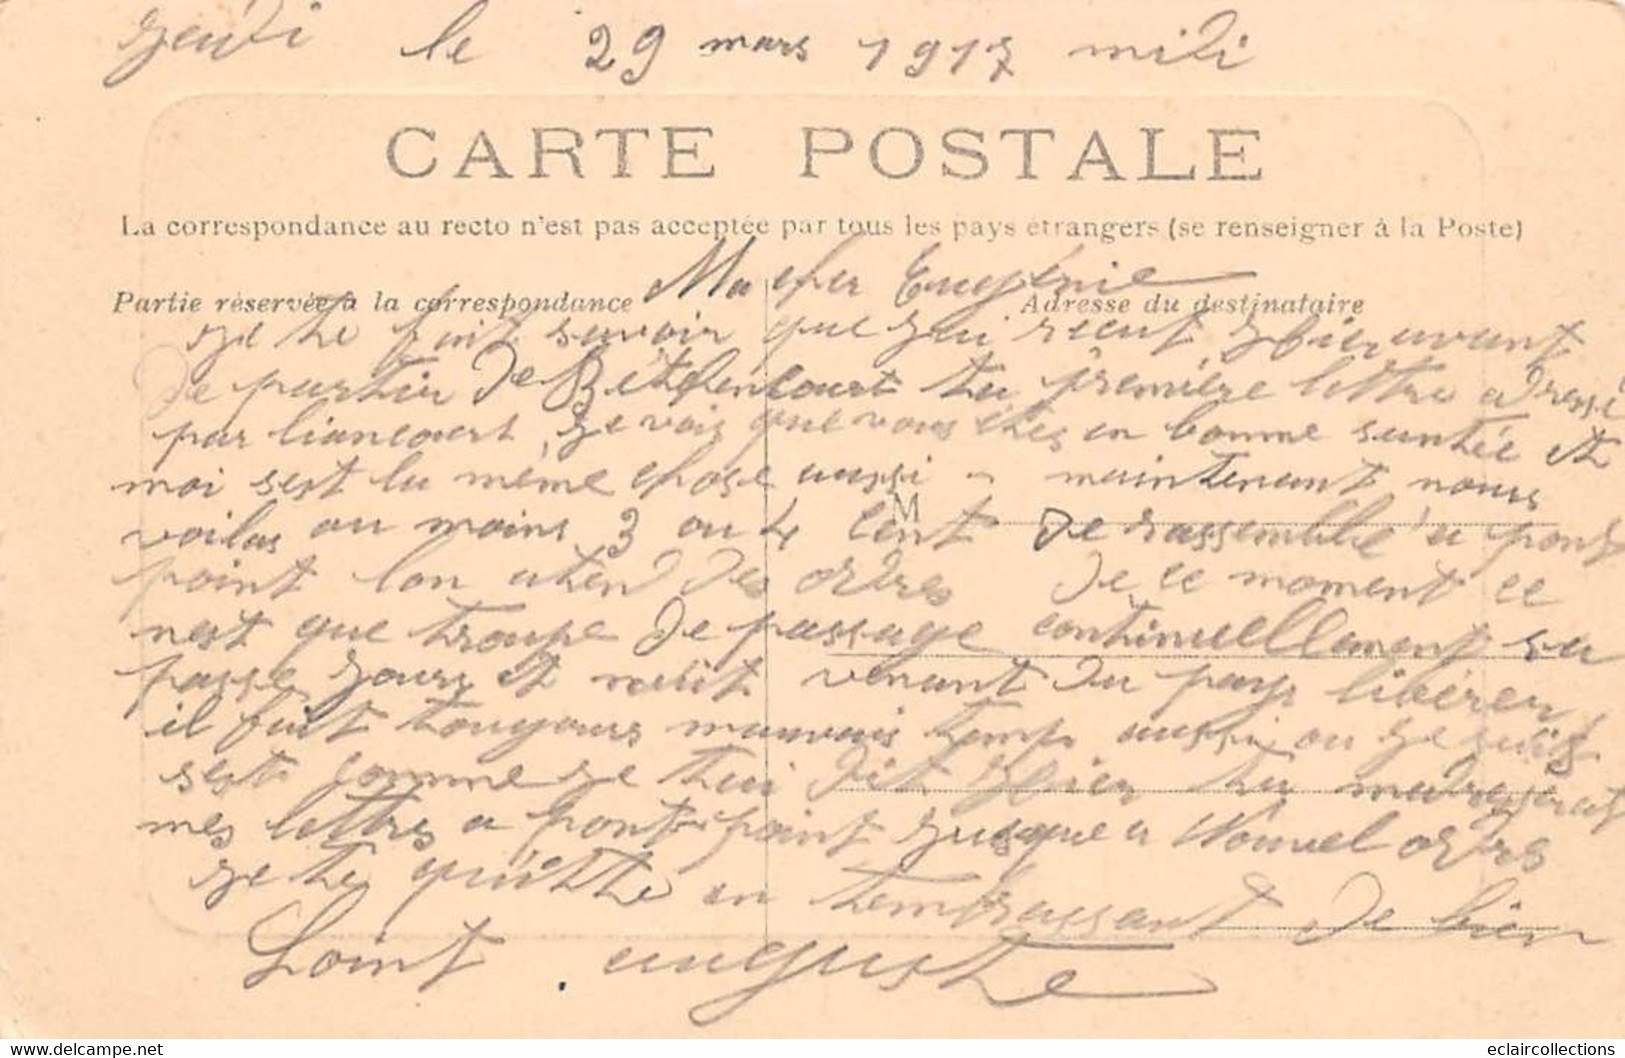 Jeudi le 29 mars 1917 midi
CARTE POSTALE
La correspondance au recto n'est pas acceptée par tous les pays étrangers (se renseigner à la Poste)
Ma cher Eugénie
Partie réservée à la correspondance
Adresse du destinataire
Je te fait savoir que jai recut hier avant
de partir de Béthencourt ta première lettre adressé
par liancourt, je vois que vous êtes en bonne santée et
moi sest la même chose aussi - maintenant nous
M
voilas au moins 3 ou 4 cent de rassemblé a pont
point lon aten des ordres De ce moment ce
nest que troupe de passage continuellement sa
passe jours et nuit venant du pays libérer
il fait toujours mauvais temp aussi ou je suis
sest comme je tai dit hier tu madresserat
mes lettres a pont point jusque a nouvel ordre
je te quitte en tembrassant de bien
Loint . auguste
delcampe.net
eclaircollections